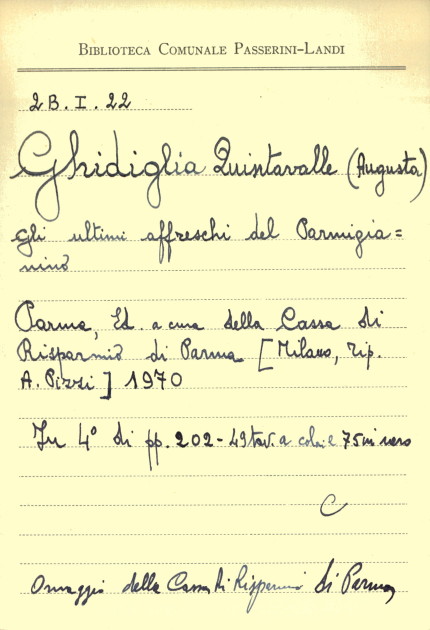 BIBLIOTECA COMUNALE PASSERINI-LANDI
2B. I. 22
Ghidiglia Quintavalle (Augusta)
Gli ultimi affreschi del Parmigia=
nino
Parma, Ed. a cura della Cassa di
Risparmio di Parma [Milano, tip.
A. Pizzi] 1970
In 4° di pp. 202 - 49 tav. a col. e 75 in nero
C
Omaggio della Cassa di Risparmio di Parma